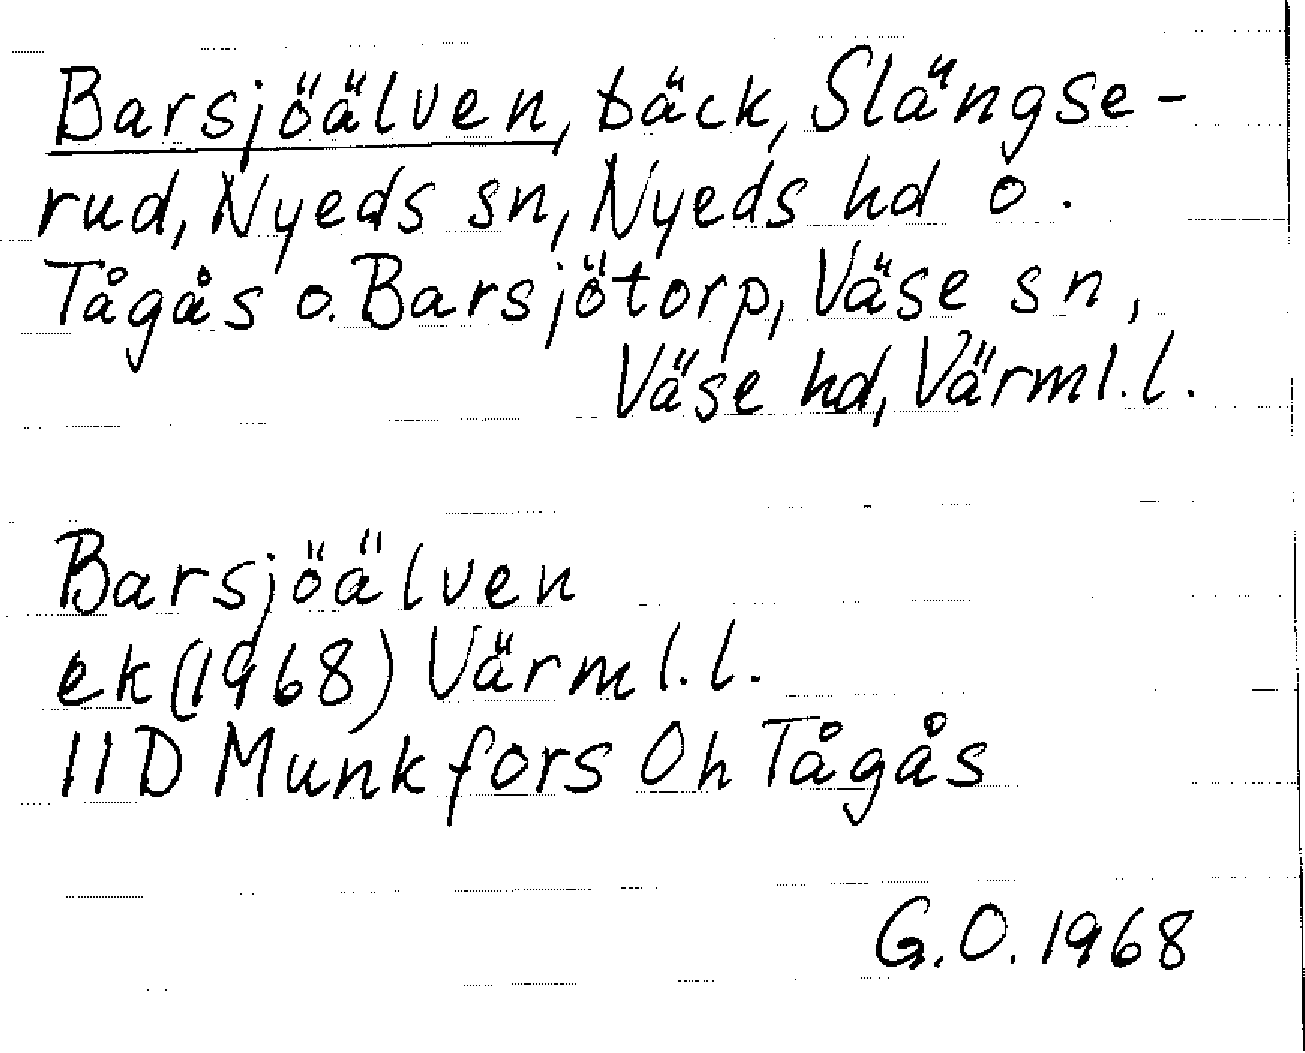 Barsjöälven, bäck, Slängse-
rud, Nyeds sn, Nyeds hd o.
Tågås o. Barsjötorp, Väse sn,
Väse hd, Värml.l.
Barsjöälven
ek (1968) Värml.l.
11D Munkfors 0h Tågås
G.O. 1968